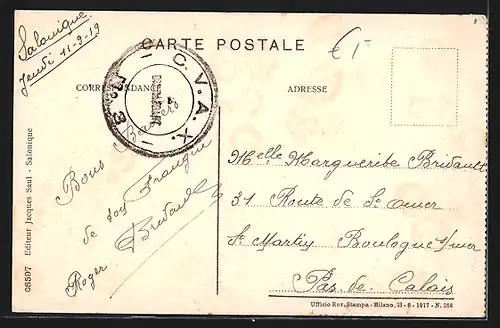 Salonique
Jeudi 11-9-19
CARTE POSTALE
£1-
CORRESPONDANCE
ADRESSE
C.V.A.X.
No 3
Bons Baisers
de ton
Bridault
Roger
Melle Marguerite Bridault
31 Route de St omer
St Martin Boulogne s/mer
Pas-de-Calais
08597 Editeur Jacques Saul - Salonique
Ufficio Rev. Stampa - Milano, 21-6-1917 - N. 268